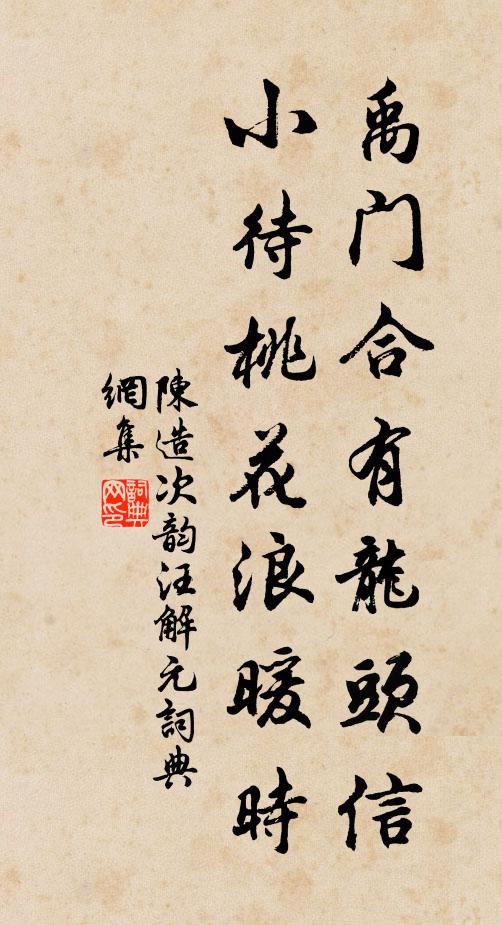 禹门合有龍頭信
小待桃花浪暖時
陳造次韵汪解元詞典
網集
詞典
网印